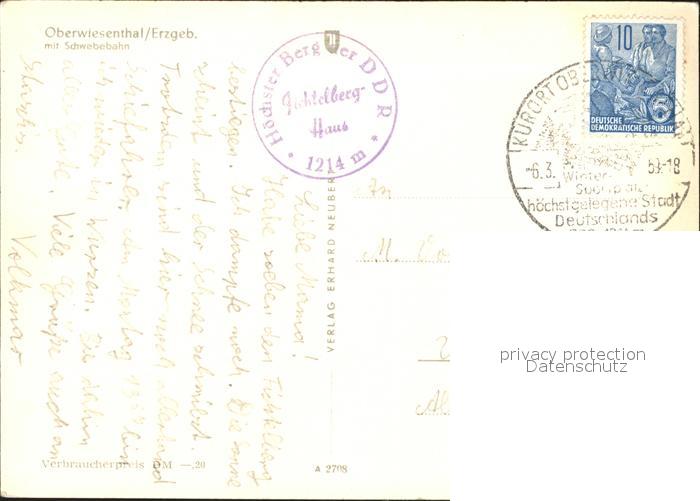 Oberwiesenthal/Erzgeb.
mit Schwebebahn
Höchster Berg der DDR
Fichtelberg-
Haus
1214 m
10
DEUTSCHE
DEMOKRATISCHE REPUBLIK
KURORT
-6.3. 59.-18
Winter-
höchstgelegene Stadt
Deutschlands
Liebe Mama!
Habe soeben den Fichtelberg
bestiegen. Ich dampfe noch. Die Sonne
scheint und der Schnee schmilzt.
Trotzdem sind hier noch allerhand
Schifahrer. Am Montag
ich wieder in Wurzen. Bis dahin
alles Gute. Viele Grüße auch an
Volkmar
VERLAG ERHARD NEUBER
An
M.
privacy protection
Datenschutz
Verbraucherpreis DM —,20
A 2708